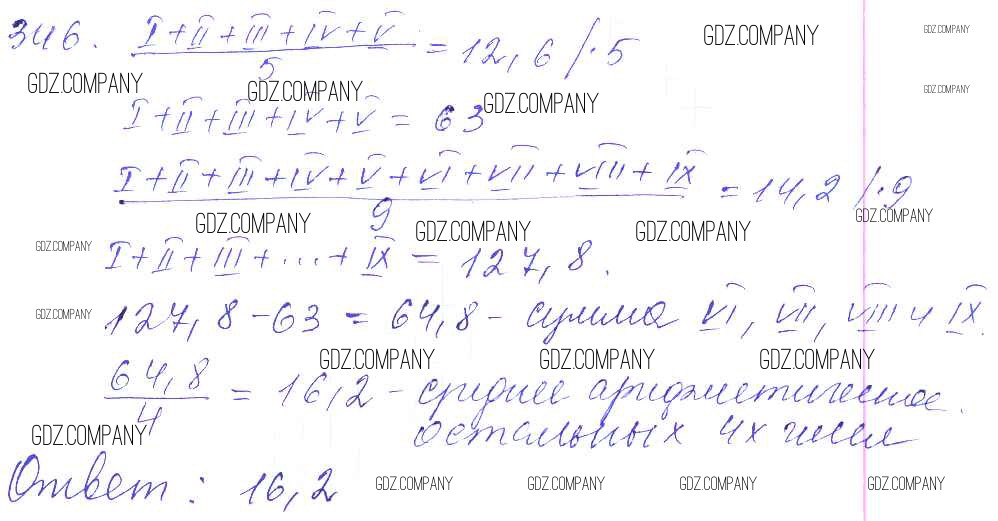 346. (I+II+III+IV+V)/5 = 12,6 /·5
I+II+III+IV+V = 63
(I+II+III+IV+V+VI+VII+VIII+IX)/9 = 14,2 /·9
I+II+III+...+IX = 127,8.
127,8-63 = 64,8 - сумма VI, VII, VIII и IX.
64,8/4 = 16,2 - среднее арифметическое
остальных 4х чисел
Ответ: 16,2
GDZ.COMPANY GDZ.COMPANY
GDZ.COMPANY GDZ.COMPANY GDZ.COMPANY GDZ.COMPANY
GDZ.COMPANY GDZ.COMPANY GDZ.COMPANY GDZ.COMPANY
GDZ.COMPANY
GDZ.COMPANY
GDZ.COMPANY GDZ.COMPANY GDZ.COMPANY
GDZ.COMPANY
GDZ.COMPANY GDZ.COMPANY GDZ.COMPANY GDZ.COMPANY